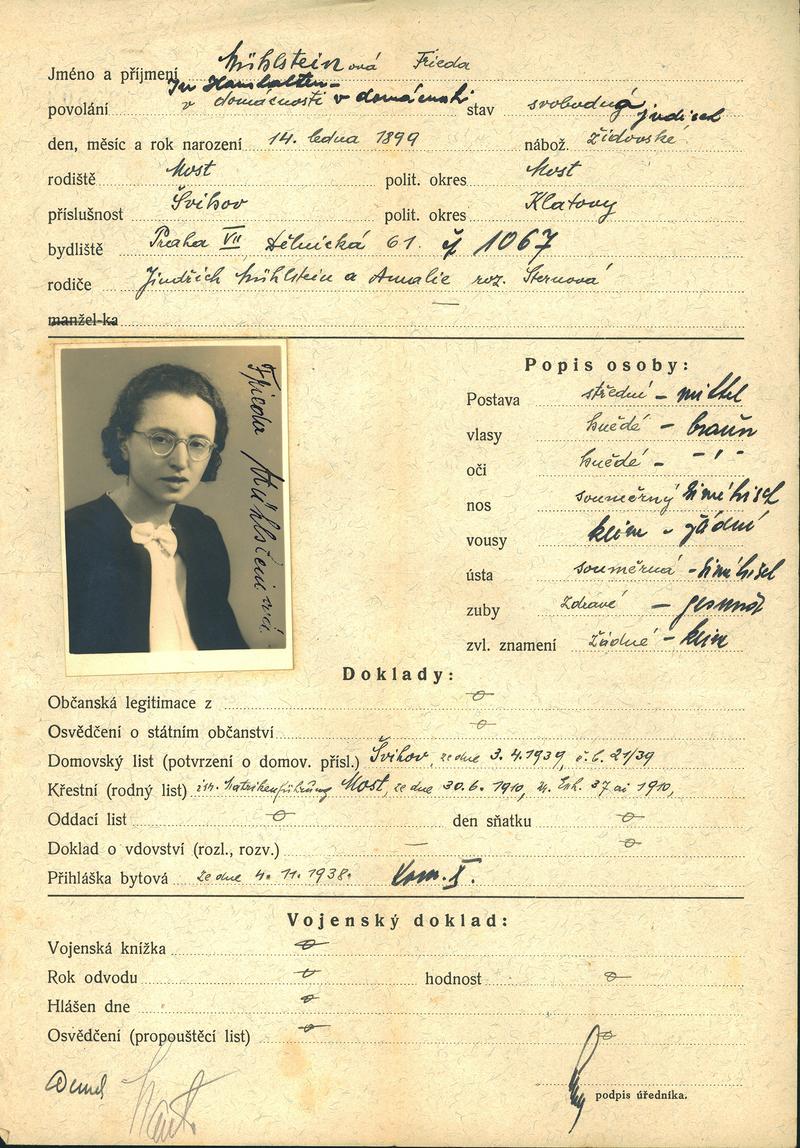 Jméno a příjmení Mühlsteinová Frieda
In Haushalten-
povolání v domácnosti v domácnosti stav svobodná
jüdisch
den, měsíc a rok narození 14. ledna 1899 nábož. židovské
rodiště Most polit. okres Most
příslušnost Švihov polit. okres Klatovy
bydliště Praha VII Dělnická 61. čj 1067
rodiče Jindřich Mühlstein a Amalie roz. Sternová
manžel-ka
Frieda Mühlsteinová
Popis osoby:
Postava střední - mittel
vlasy hnědé - braun
oči hnědé - - " -
nos souměrný
vousy žádné
ústa souměrná
zuby zdravé - gesund
zvl. znamení žádné - kein
Doklady:
Občanská legitimace z
Osvědčení o státním občanství
Domovský list (potvrzení o domov. přísl.) Švihov, ze dne 3.4.1939, č.b. 21/39
Křestní (rodný list) isr. Matrikenführung Most, ze dne 30.6. 1910, 37 ai 1910,
Oddací list den sňatku
Doklad o vdovství (rozl., rozv.) —
Přihláška bytová ze dne 4. 11. 1938. Kom. X.
Vojenský doklad:
Vojenská knížka
Rok odvodu hodnost
Hlášen dne
Osvědčení (propouštěcí list)
podpis úředníka.